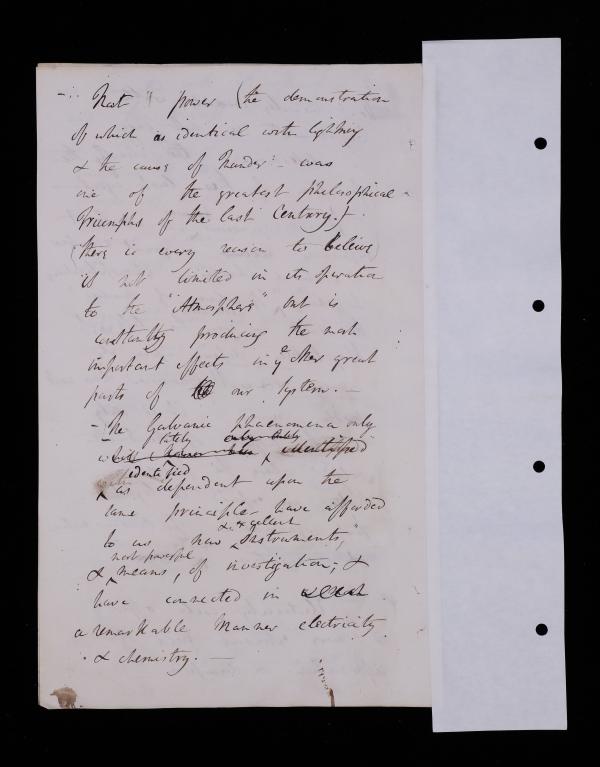 - That power (the demonstration
of which as identical with lightning
& the cause of Thunder - was
one of the greatest philosophical
triumphs of the last Century.)
(there is every reason to believe)
is not limited in its operation
to the "Atmosphere" but is
constantly producing the most
important effects in ye other great
parts of our System. -
- The Galvanic phaenomena only
lately only lately
which have been identified
identified
as dependent upon the
same principle have afforded
& excellent
to us new Instruments,
most powerful
& means, of investigation, &
have connected in
a remarkable manner electricity
& chemistry. -